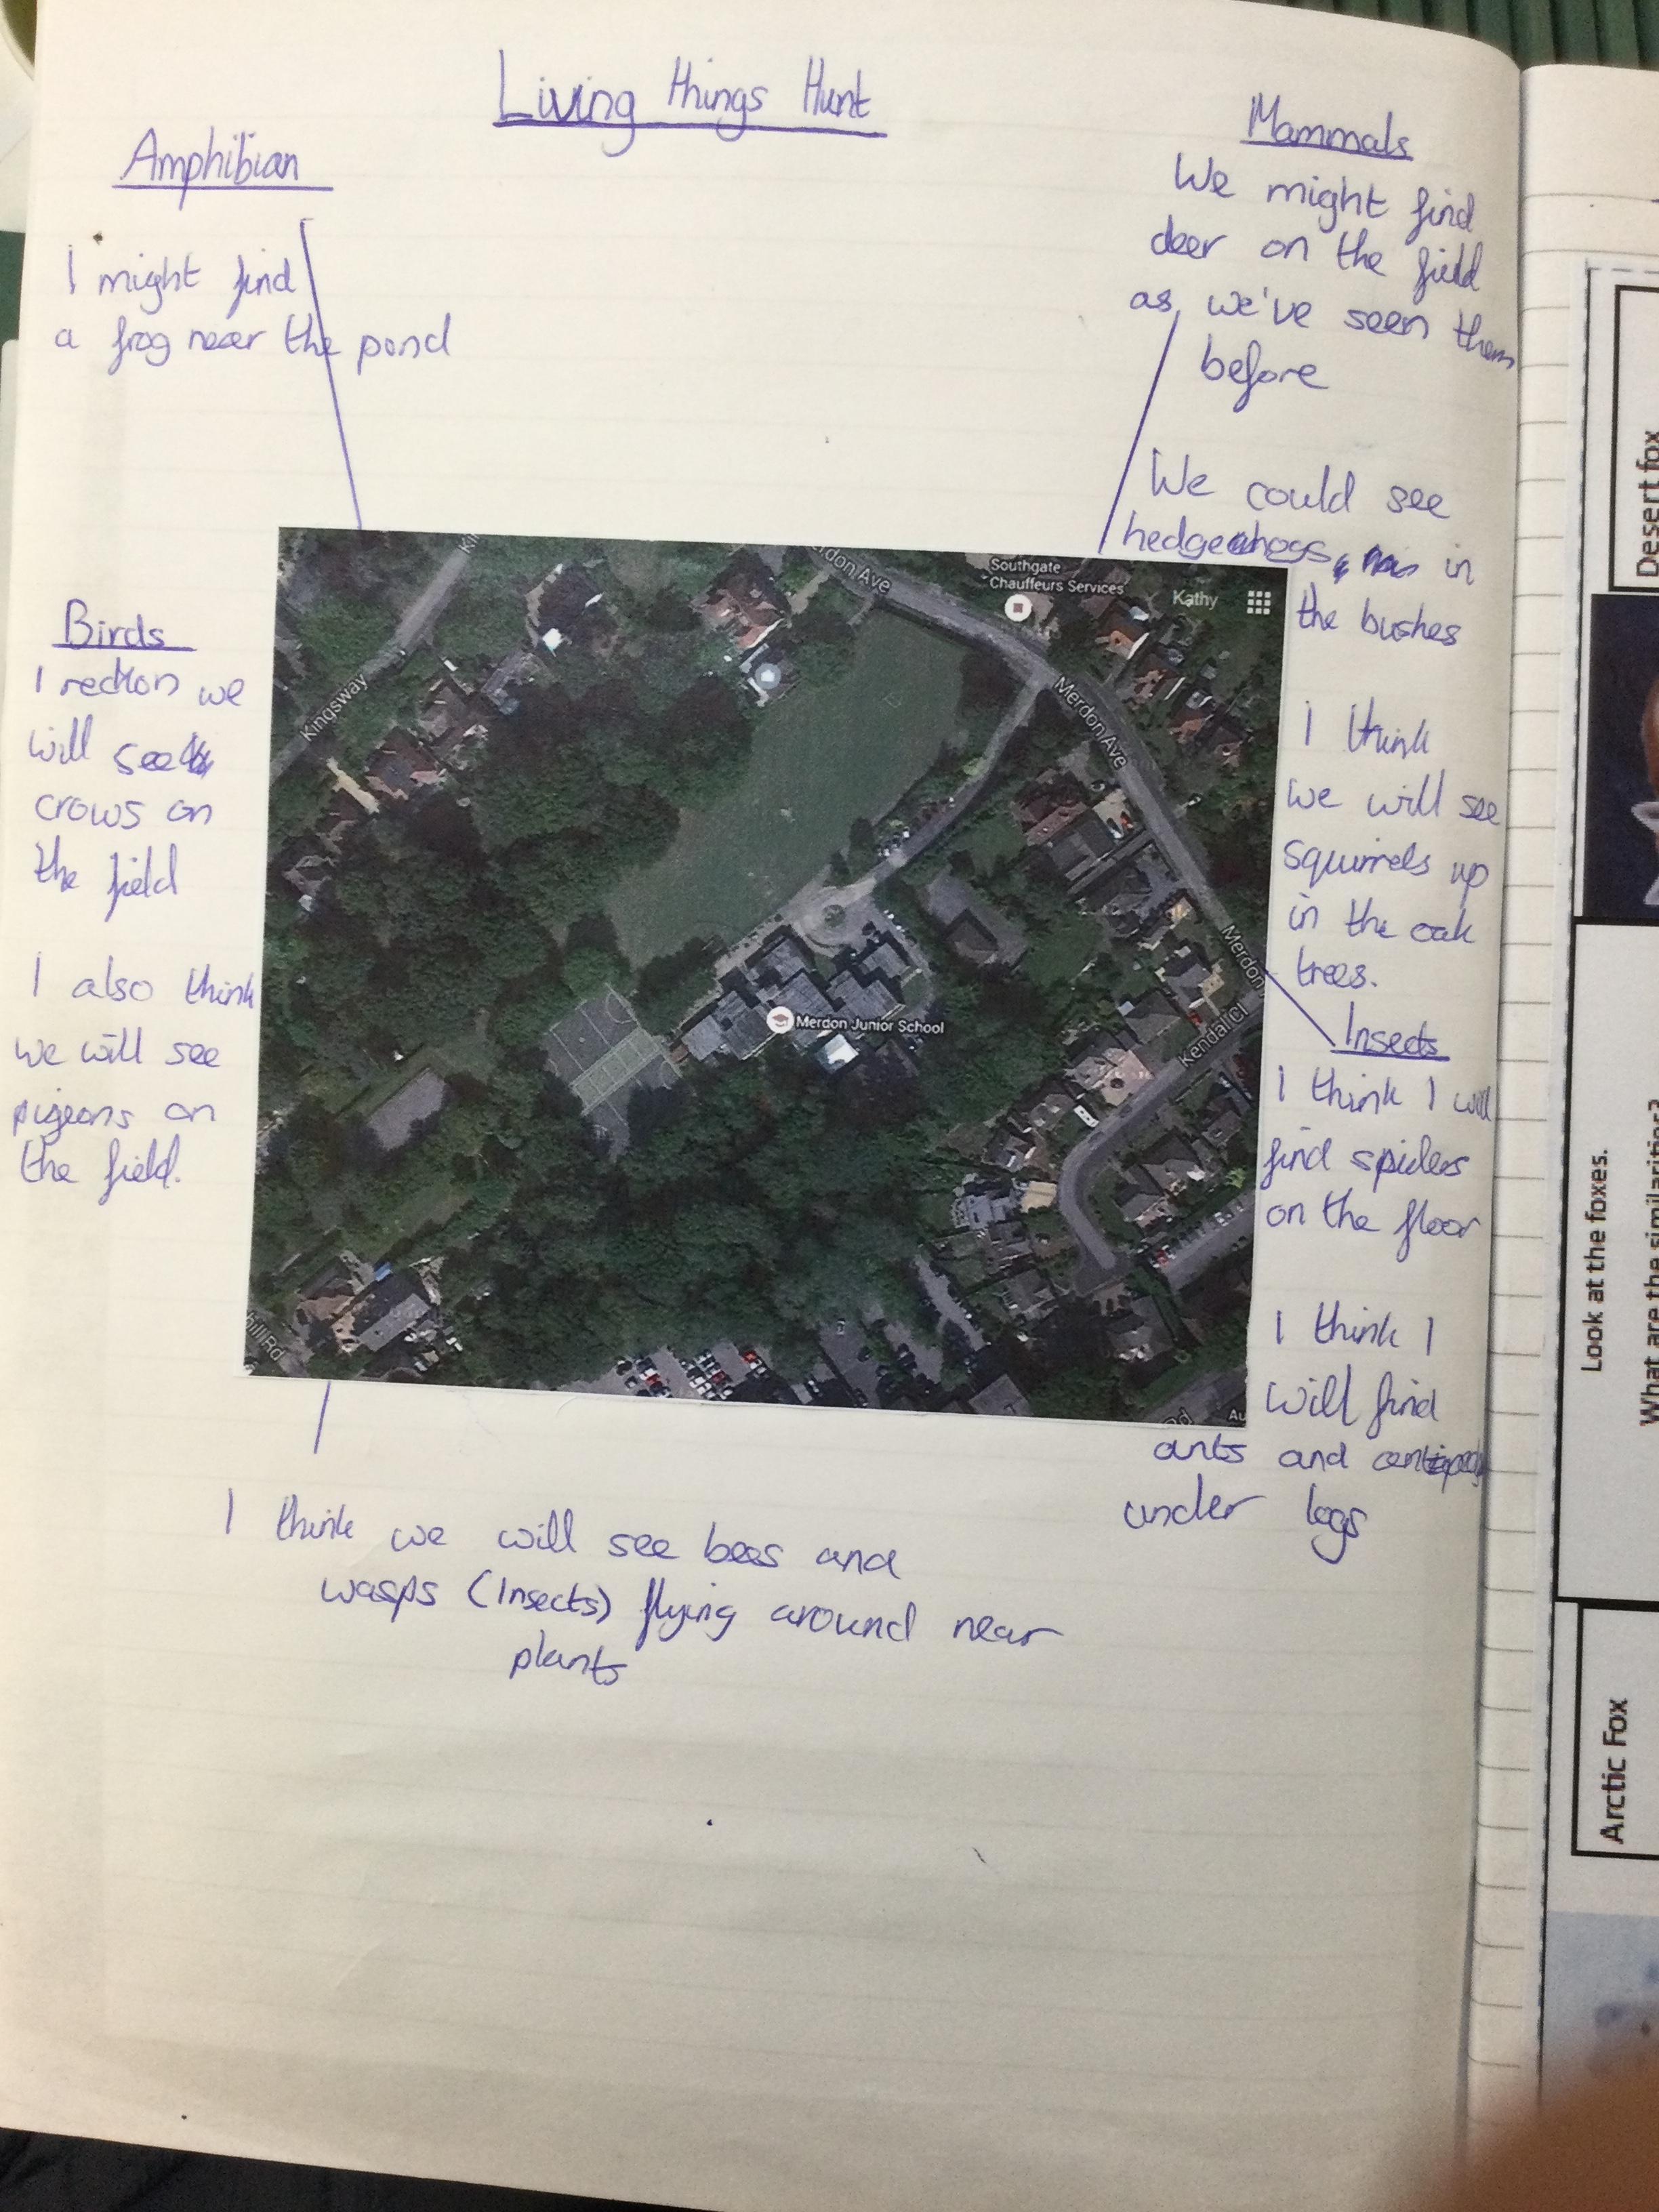 Living things Hunt
Amphibian
I might find
a frog near the pond
Mammals
We might find
deer on the field
as we've seen them
before
We could see
hedgehogs in
the bushes
I think
we will see
squirrels up
in the oak
trees.
Birds
I reckon we
will see
crows on
the field
I also think
we will see
pigeons on
the field.
Insects
I think I will
find spiders
on the floor
I think I
will find
ants and
under logs
I think we will see bees and
wasps (Insects) flying around near
plants
Kingsway
rdon Ave
Southgate
Chauffeurs Services
Kathy
Merdon Ave
Merdon
Kendal Cl
Merdon Junior School
hill Rd
Rd
Au
Desert fox
Look at the foxes.
What are the similarities?
Arctic Fox